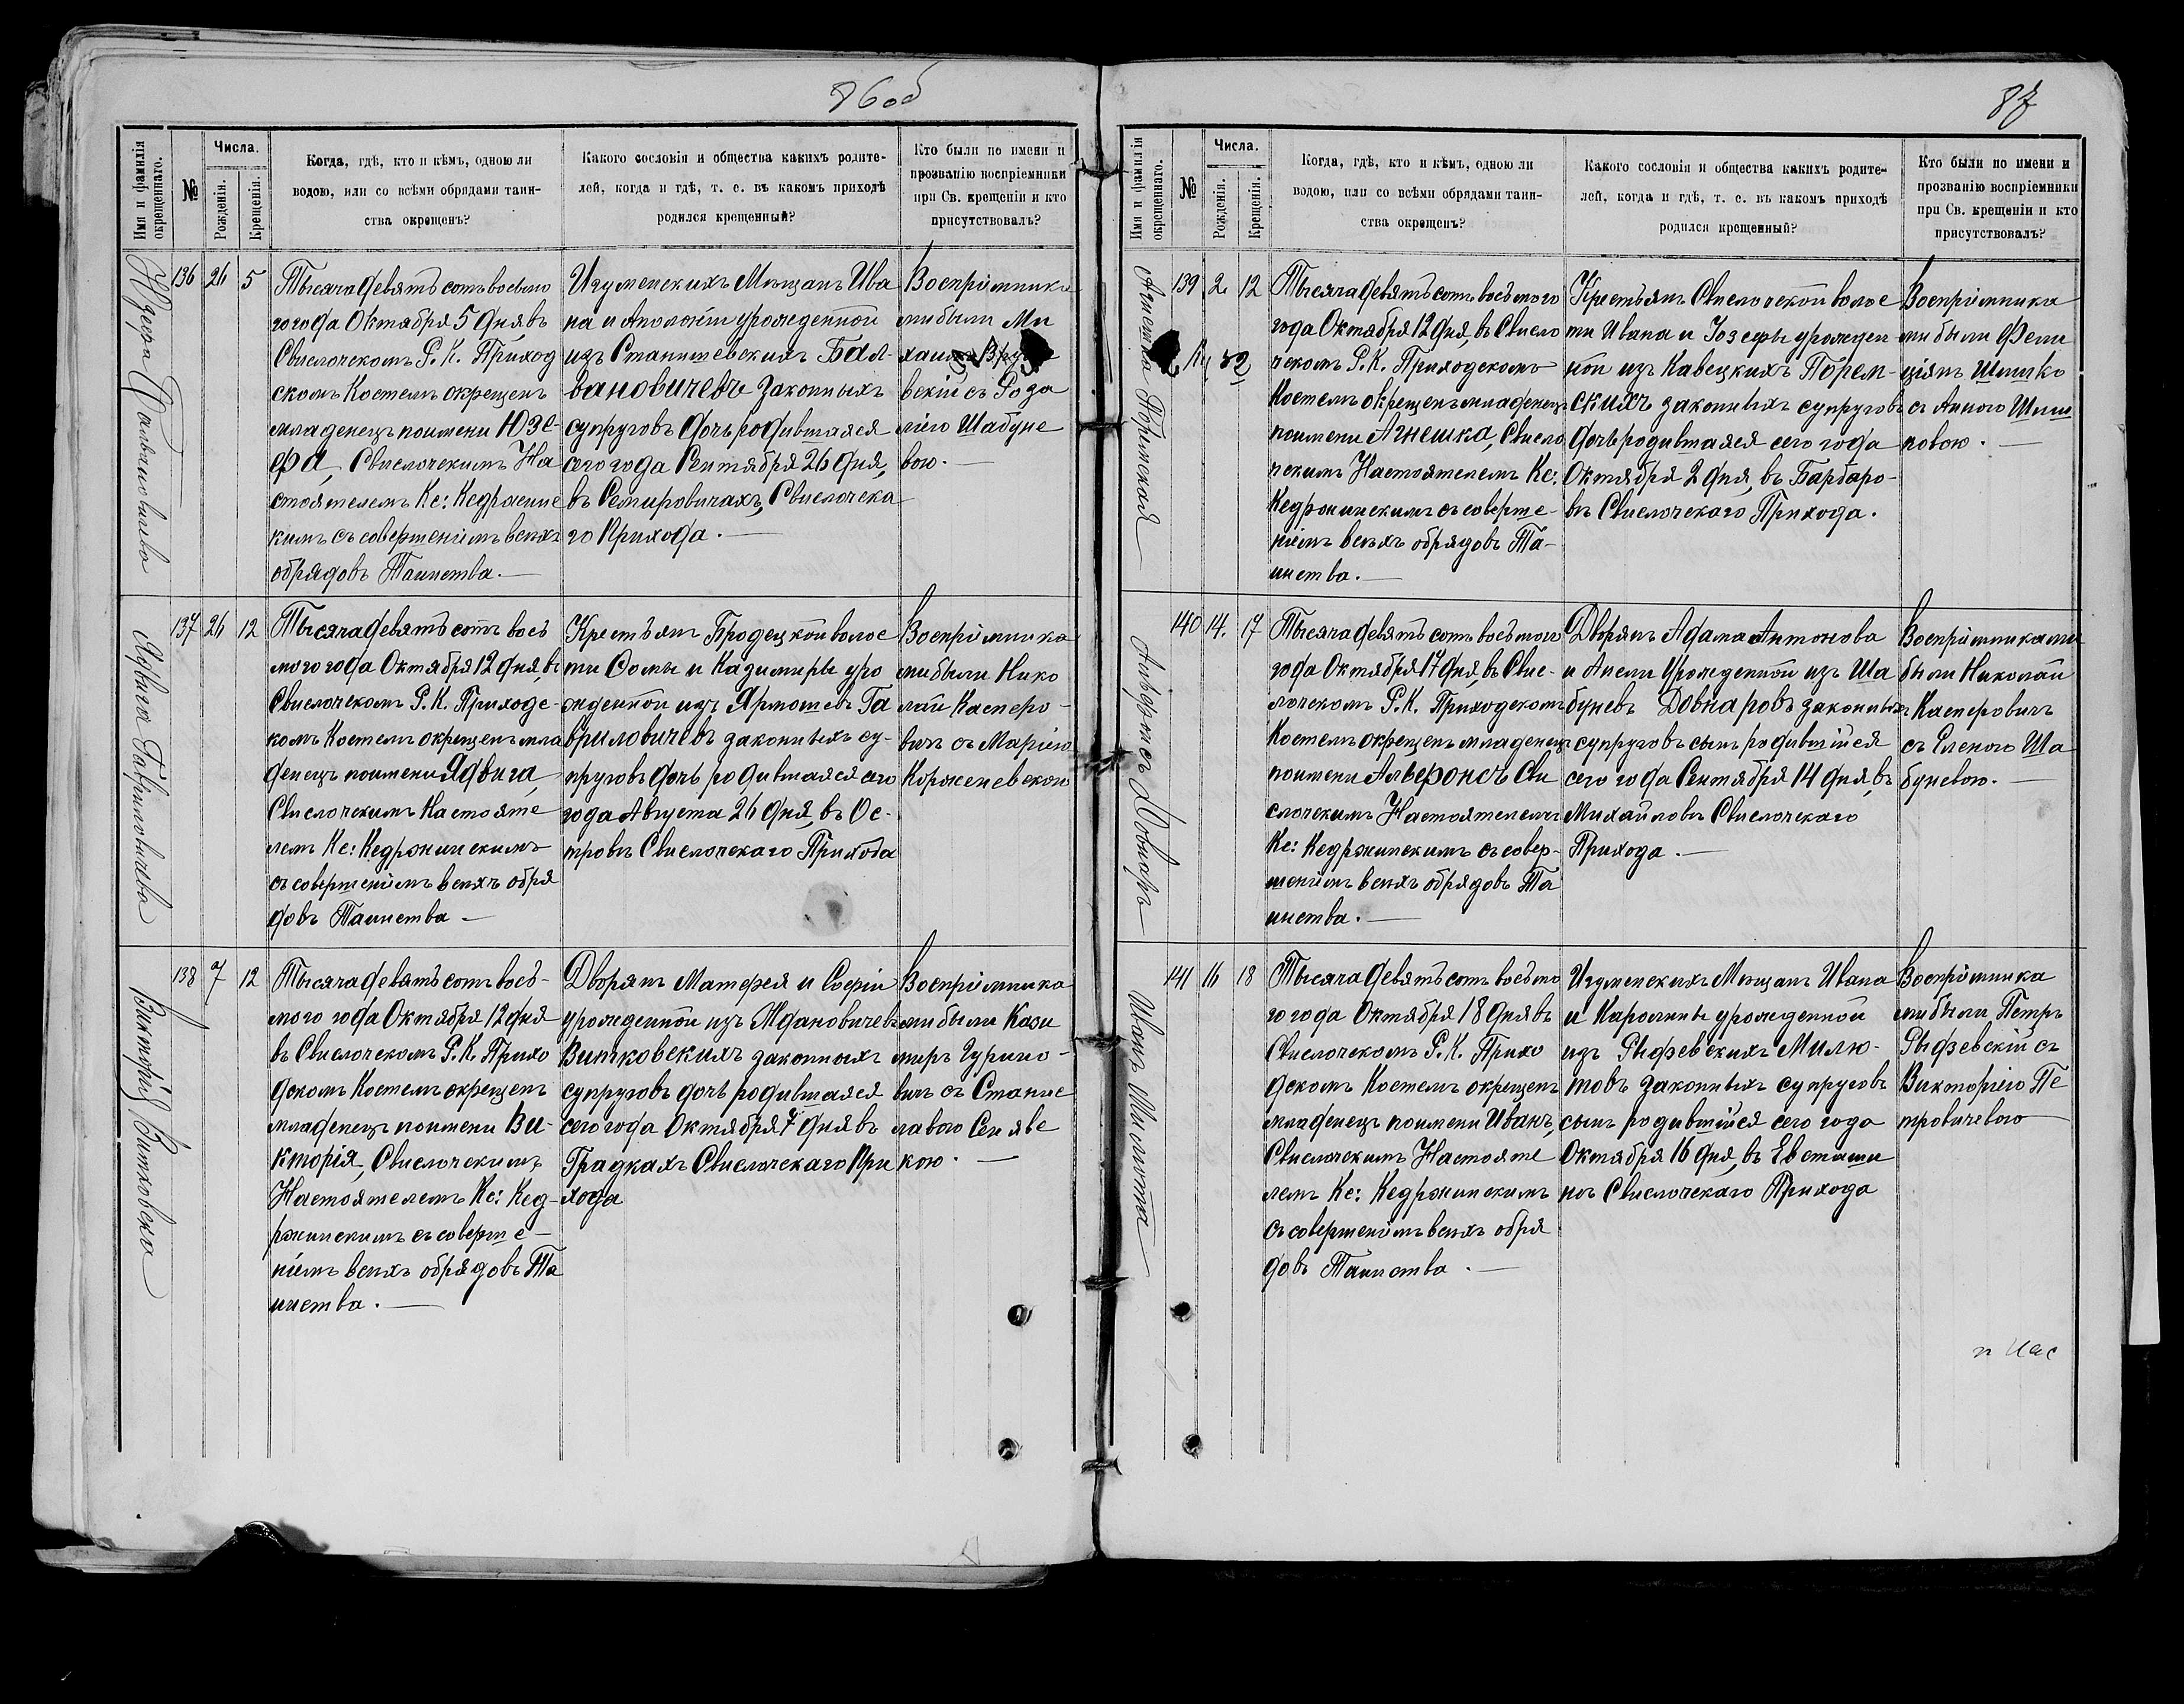 86об
Имя и фамилія окрещеннаго.
№
Числа.
Рожденія.
Крещенія.
Когда, гдѣ, кто и кѣмъ, одною ли
водою, или со всѣми обрядами таин-
ства окрещенъ?
Какого сословія и общества какихъ родите-
лей, когда и гдѣ, т. е. въ какомъ приходѣ
родился крещенный?
Кто были по имени и
прозванію воспріемники
при Св. крещеніи и кто
присутствовалъ?
Юзефа Бальвановичева
136 26 5
Тысяча девятьсотъ восьмо
го года Октября 5 дня въ
Свислочскомъ Р. К. Приход
скомъ Костелѣ окрещенъ
младенецъ по имени Юзе-
фа, Свислочскимъ На
стоятелемъ Кс: Кедржинс
кимъ съ совершеніемъ всѣхъ
обрядовъ Таинства.—
Игуменскихъ Мѣщанъ Ива
на и Аполоніи урожденной
изъ Станишевскихъ Бал-
вановичевъ законныхъ
супруговъ дочь родившаяся
сего года Сентября 26 дня,
въ Семировичахъ, Свислочска
го Прихода.—
Воспріемника
ми были Ми
хаилъ
вскій съ Роза
ліею Шабуне
вою.—
Ядвига Гавриловичева
137 26 12
Тысяча девятьсотъ вось
мого года Октября 12 дня, въ
Свислочскомъ Р. К. Приходс-
комъ Костелѣ окрещенъ мла
денецъ по имени Ядвига,
Свислочскимъ Настояте
лемъ Кс: Кедржинскимъ
съ совершеніемъ всѣхъ обря
довъ Таинства —
Крестьянъ Бродецкой волос
ти Сомы и Казимиры уро
жденной изъ Ярмошевъ Га
вриловичевъ законныхъ су-
пруговъ дочь родившаяся сего
года Августа 26 дня, въ Ос-
тровѣ Свислочскаго Прихода
Воспріемника
ми были Нико
лай Касперо-
вичъ съ Маріею
Корженевскою
Викторія Витковска
138 7 12
Тысяча девятьсотъ вось-
мого года Октября 12 дня
въ Свислочскомъ Р. К. Прихо
дскомъ Костелѣ окрещенъ
младенецъ по имени Ви-
кторія, Свислочскимъ
Настоятелемъ Кс: Кед-
ржинскимъ съ соверше-
ніемъ всѣхъ обрядовъ Та
инства.—
Дворянъ Матфея и Софіи
урожденной изъ Ждановичевъ
Витковскихъ законныхъ
супруговъ дочь родившаяся
сего года Октября 7 дня въ
Градкахъ Свислочскаго При
хода
Воспріемника
ми были Кази
миръ Гурино-
вичъ съ Станис
лавою Сеняве
кою.—
87
Имя и фамилія окрещеннаго.
№
Числа.
Рожденія.
Крещенія.
Когда, гдѣ, кто и кѣмъ, одною ли
водою, или со всѣми обрядами таин-
ства окрещенъ?
Какого сословія и общества какихъ родите-
лей, когда и гдѣ, т. е. въ какомъ приходѣ
родился крещенный?
Кто были по имени и
прозванію воспріемники
при Св. крещеніи и кто
присутствовалъ?
Агнешка Поремская
139 2 12
Тысяча девятьсотъ восьмого
года Октября 12 дня, въ Свисло
чскомъ Р. К. Приходскомъ
Костелѣ окрещенъ младенецъ
по имени Агнешка, Свисло
чскимъ Настоятелемъ Кс:
Кедржинскимъ съ соверше-
ніемъ всѣхъ обрядовъ Та-
инства.—
Крестьянъ Свислочской волос
ти Ивана и Іозефы урожден
ной изъ Кавецкихъ Порем-
скихъ законныхъ супруговъ
дочь родившаяся сего года
Октября 2 дня, въ Барбаро-
вѣ Свислочскаго Прихода.
Воспріемника
ми были Фели
ціянъ Шишко
съ Анною Шиш
ковою.—
Альфонсъ Довнаръ
140 14. 17
Тысяча девятьсотъ восьмого
года Октября 17 дня, въ Свис-
лочскомъ Р. К. Приходскомъ
Костелѣ окрещенъ младенецъ
по имени Альфонсъ Сви
слочскимъ Настоятелемъ
Кс: Кедржинскимъ съ совер-
шеніемъ всѣхъ обрядовъ Та
инства.—
Дворянъ Адама Антонова
и Анели урожденной изъ Ша
буневъ Довнаровъ законныхъ
супруговъ сынъ родившійся
сего года Сентября 14 дня, въ
Михайловѣ Свислочскаго
Прихода.—
Воспріемниками
были Николай
Касперовичъ
съ Еленою Ша
буневою.—
Иванъ Милюта
141 16 18
Тысяча девятьсотъ восьмо
го года Октября 18 дня въ
Свислочскомъ Р. К. Прихо
дскомъ Костелѣ окрещенъ
младенецъ по имени Иванъ,
Свислочскимъ Настояте
лемъ Кс: Кедржинскимъ
съ совершеніемъ всѣхъ обря
довъ Таинства.—
Игуменскихъ Мѣщанъ Ивана
и Каролины урожденной
изъ Рыдзевскихъ Милю-
товъ законныхъ супруговъ
сынъ родившійся сего года
Октября 16 дня, въ Евсташи
нѣ Свислочскаго Прихода
Воспріемника
ми были Петръ
Рыдзевскій съ
Викторіею Пе
тровичевою